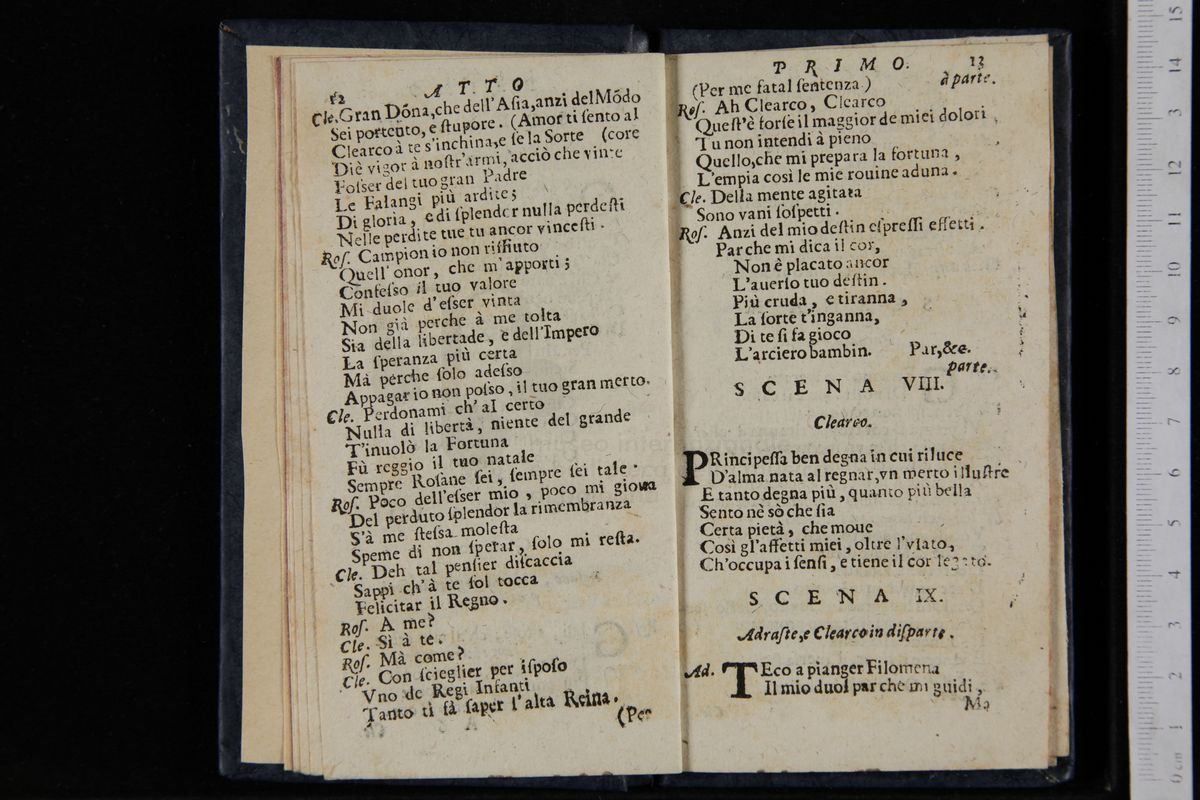 12 ATTO
Cle. Gran Dõna, che dell'Aſia, anzi del Mõdo
Sei portento, e ſtupore. (Amor ti ſento al
Clearco à te s'inchina, e ſe la Sorte (core
Diè vigor à noſtr'armi, acciò che vinte
Foſſer del tuo gran Padre
Le Falangi più ardite;
Di gloria, e di ſplendor nulla perdeſti
Nelle perdite tue tu ancor vinceſti.
Roſ. Campion io non riffiuto
Quell'onor, che m'apporti;
Confeſſo il tuo valore
Mi duole d'eſſer vinta
Non già perche à me tolta
Sia della libertade, e dell'Impero
La ſperanza più certa
Mà perche ſolo adeſſo
Appagar io non poſſo, il tuo gran merto.
Cle. Perdonami ch'al certo
Nulla di libertà, niente del grande
T'inuolò la Fortuna
Fù reggio il tuo natale
Sempre Roſane ſei, ſempre ſei tale.
Roſ. Poco dell'eſſer mio, poco mi gioua
Del perduto ſplendor la rimembranza
S'à me ſteſſa moleſta
Speme di non ſperar, ſolo mi reſta.
Cle. Deh tal penſier diſcaccia
Sappi ch'à te ſol tocca
Felicitar il Regno.
Roſ. A me?
Cle. Sì à te.
Roſ. Mà come?
Cle. Con ſcieglier per iſpoſo
Vno de Regi Infanti
Tanto ti fà ſaper l'alta Reina.
(Per
PRIMO. 13
(Per me fatal ſentenza) à parte.
Roſ. Ah Clearco, Clearco
Queſt'è forſe il maggior de miei dolori
Tu non intendi à pieno
Quello, che mi prepara la fortuna,
L'empia così le mie rouine aduna.
Cle. Della mente agitata
Sono vani ſoſpetti.
Roſ. Anzi del mio deſtin eſpreſſi effetti.
Par che mi dica il cor,
Non è placato ancor
L'auerſo tuo deſtin.
Più cruda, e tiranna,
La ſorte t'inganna,
Di te ſi fa gioco
L'arciero bambin. Par, &c.
parte.
SCENA VIII.
Clearco.
PRincipeſſa ben degna in cui riluce
D'alma nata al regnar, vn merto illuſtre
E tanto degna più, quanto più bella
Sento nè sò che ſia
Certa pietà, che moue
Così gl'affetti miei, oltre l'vſato,
Ch'occupa i ſenſi, e tiene il cor legato.
SCENA IX.
Adraſte, e Clearco in diſparte.
Ad. TEco a pianger Filomena
Il mio duol par che mi guidi,
Ma